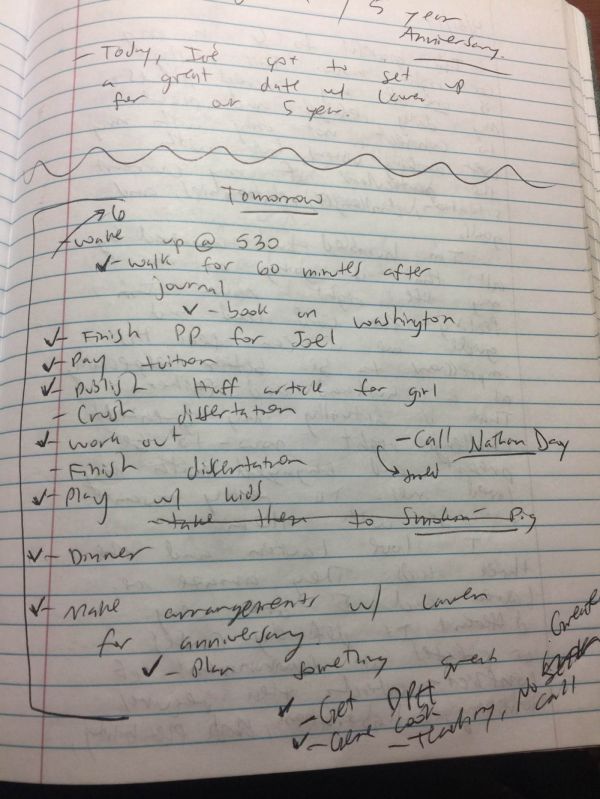 / 5 year
Anniversary.
- Today, I've got to set up
a great date w/ Lauren
for our 5 year.
Tomorrow
6
- wake up @ 530
✓- walk for 60 minutes after
journal
✓ - book on Washington
✓- Finish PP for Joel
✓- Pay tuition
✓- Publish Huff article for girl
- Crush dissertation
✓- work out
- Call Nathan Day
- Finish dissertation
✓- Play w/ kids
- take them to Smokin' Pig
✓- Dinner
✓- Make arrangements w/ Lauren
for anniversary.
✓- Plan something great
✓ - Get DPH
✓ - Gene Cook - Teaching, No
Great
call